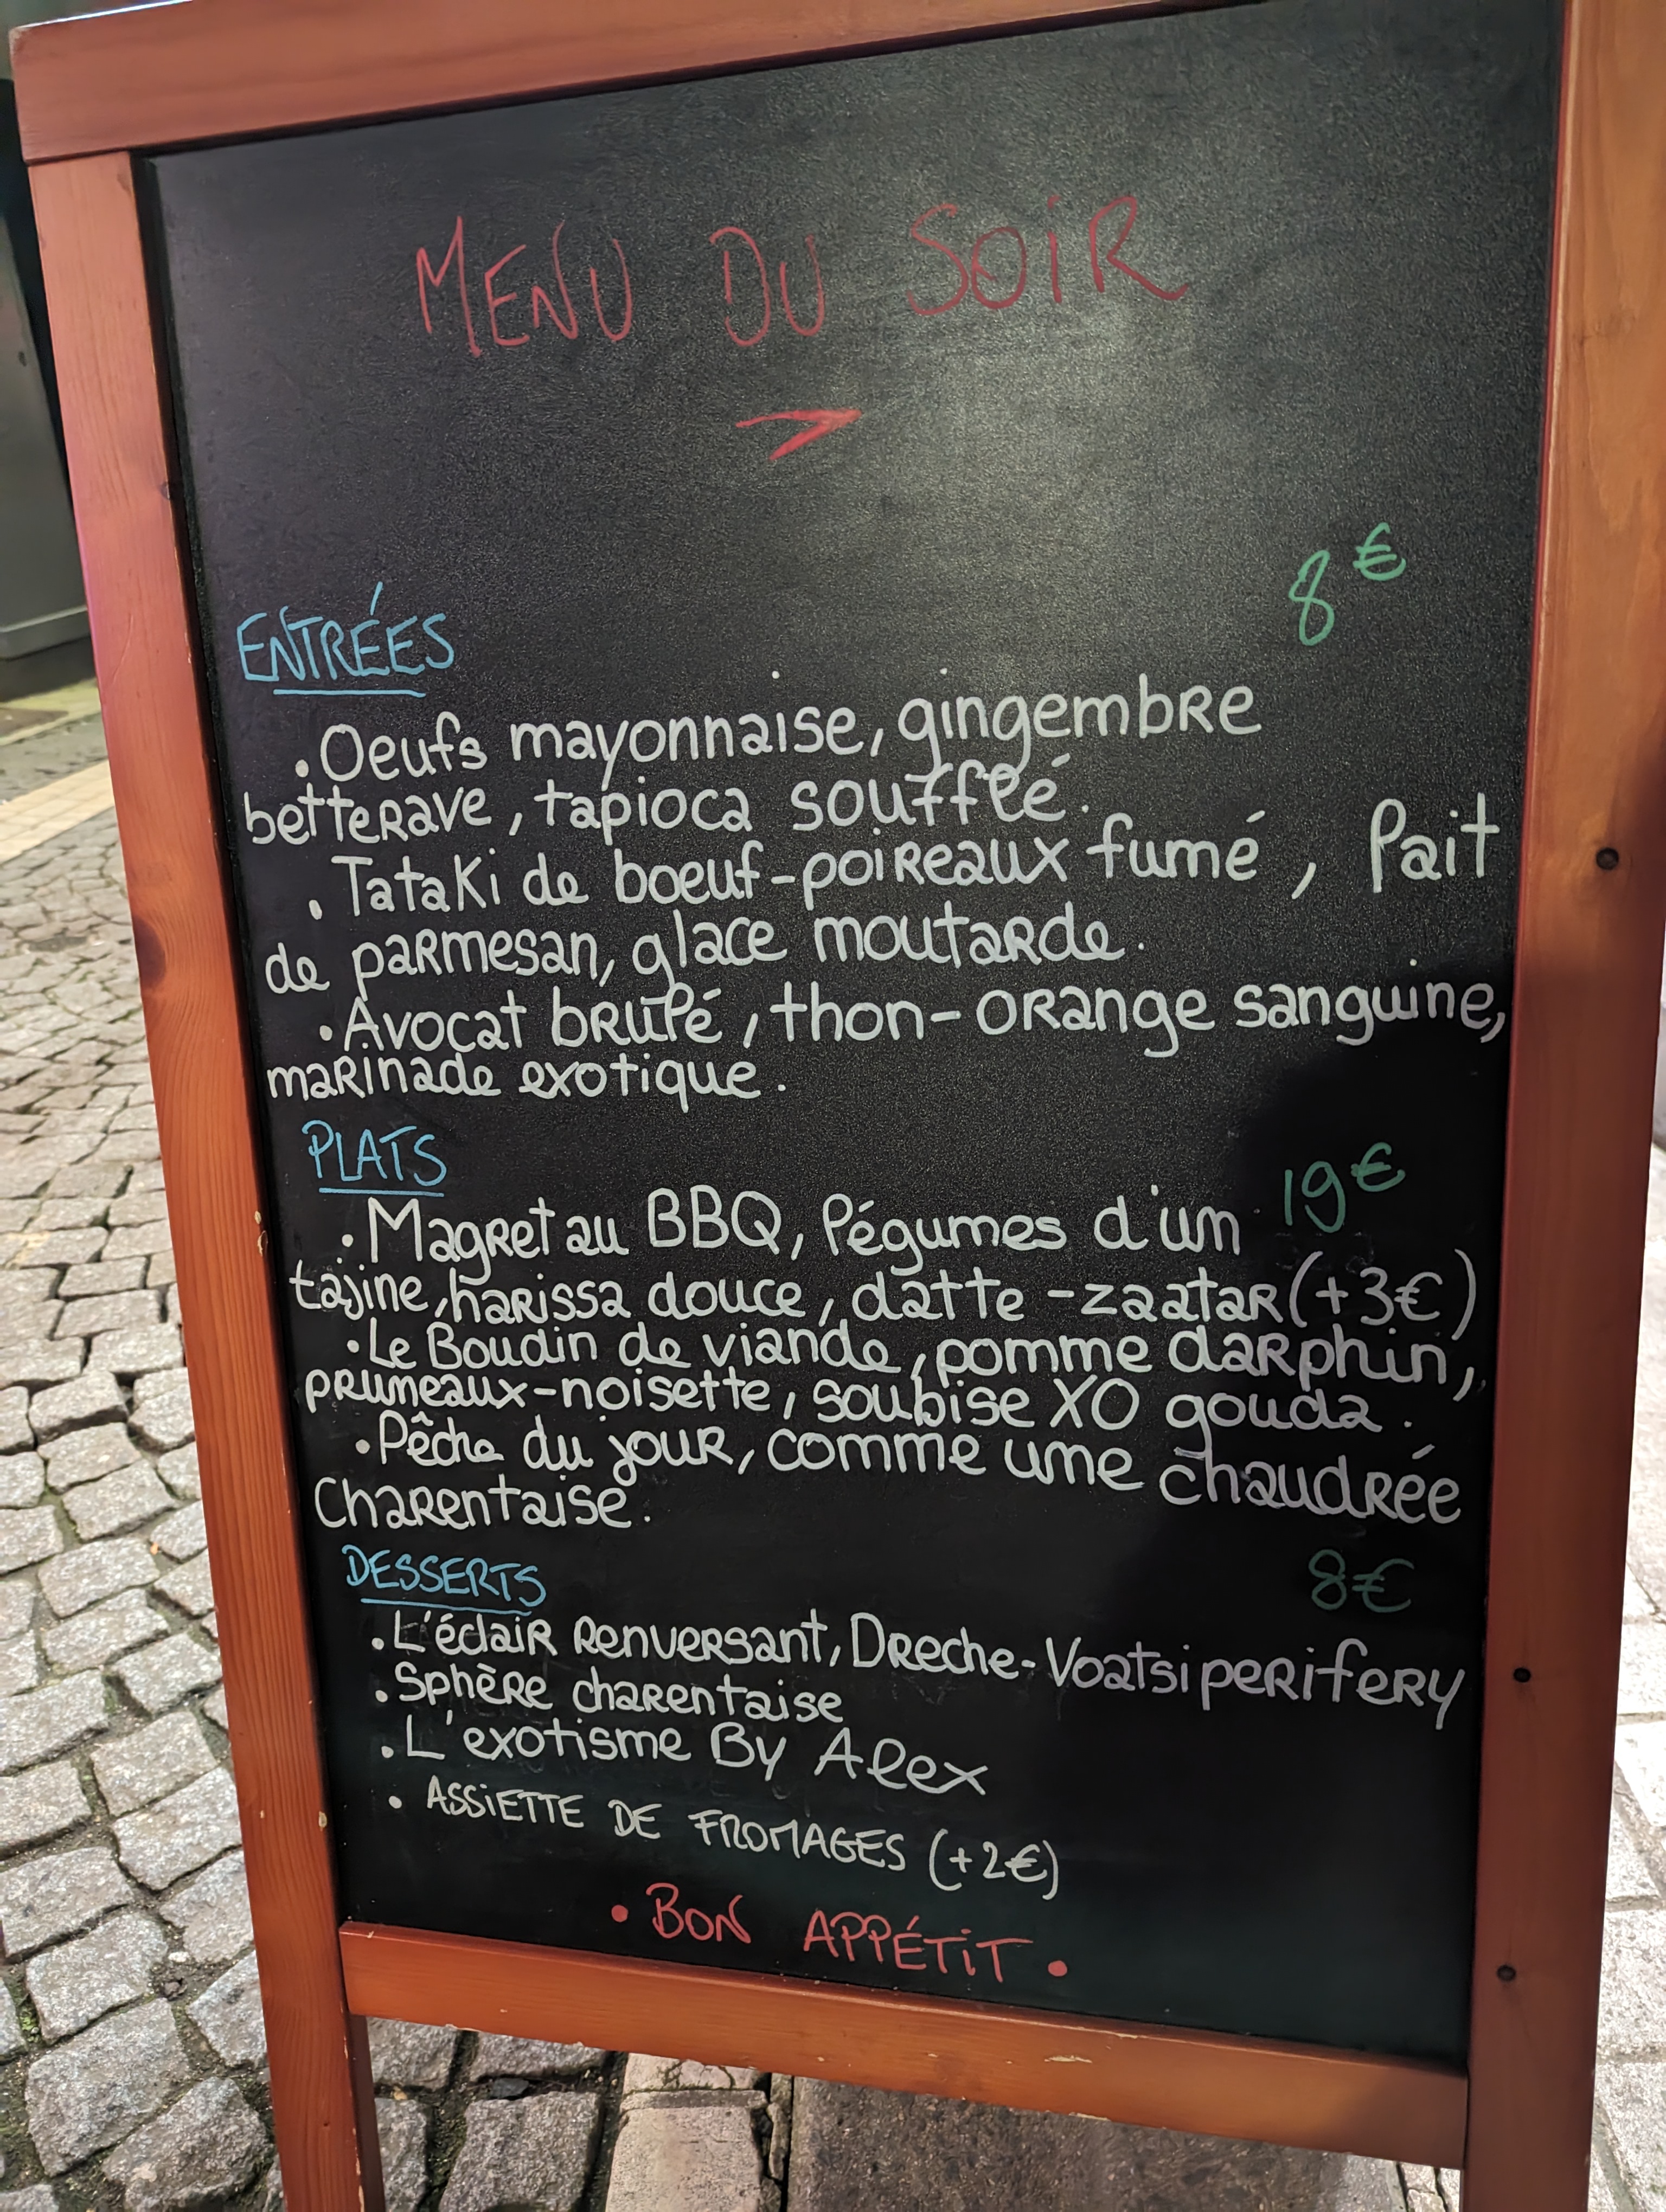 MENU DU SOIR
8€
ENTRÉES
• Oeufs mayonnaise, gingembre
betterave, tapioca soufflé.
• Tataki de boeuf-poireaux fumé, lait
de parmesan, glace moutarde.
• Avocat brulé, thon-orange sanguine,
marinade exotique.
PLATS
19€
• Magret au BBQ, légumes d'un
tajine, harissa douce, datte-zaatar (+3€)
• Le Boudin de viande, pomme darphin,
pruneaux-noisette, soubise XO gouda.
• Pêche du jour, comme une chaudrée
Charentaise.
DESSERTS
8€
• L'éclair Renversant, Dreche-Voatsiperifery
• Sphère charentaise
• L'exotisme By Alex
• ASSIETTE DE FROMAGES (+2€)
• BON APPÉTIT •